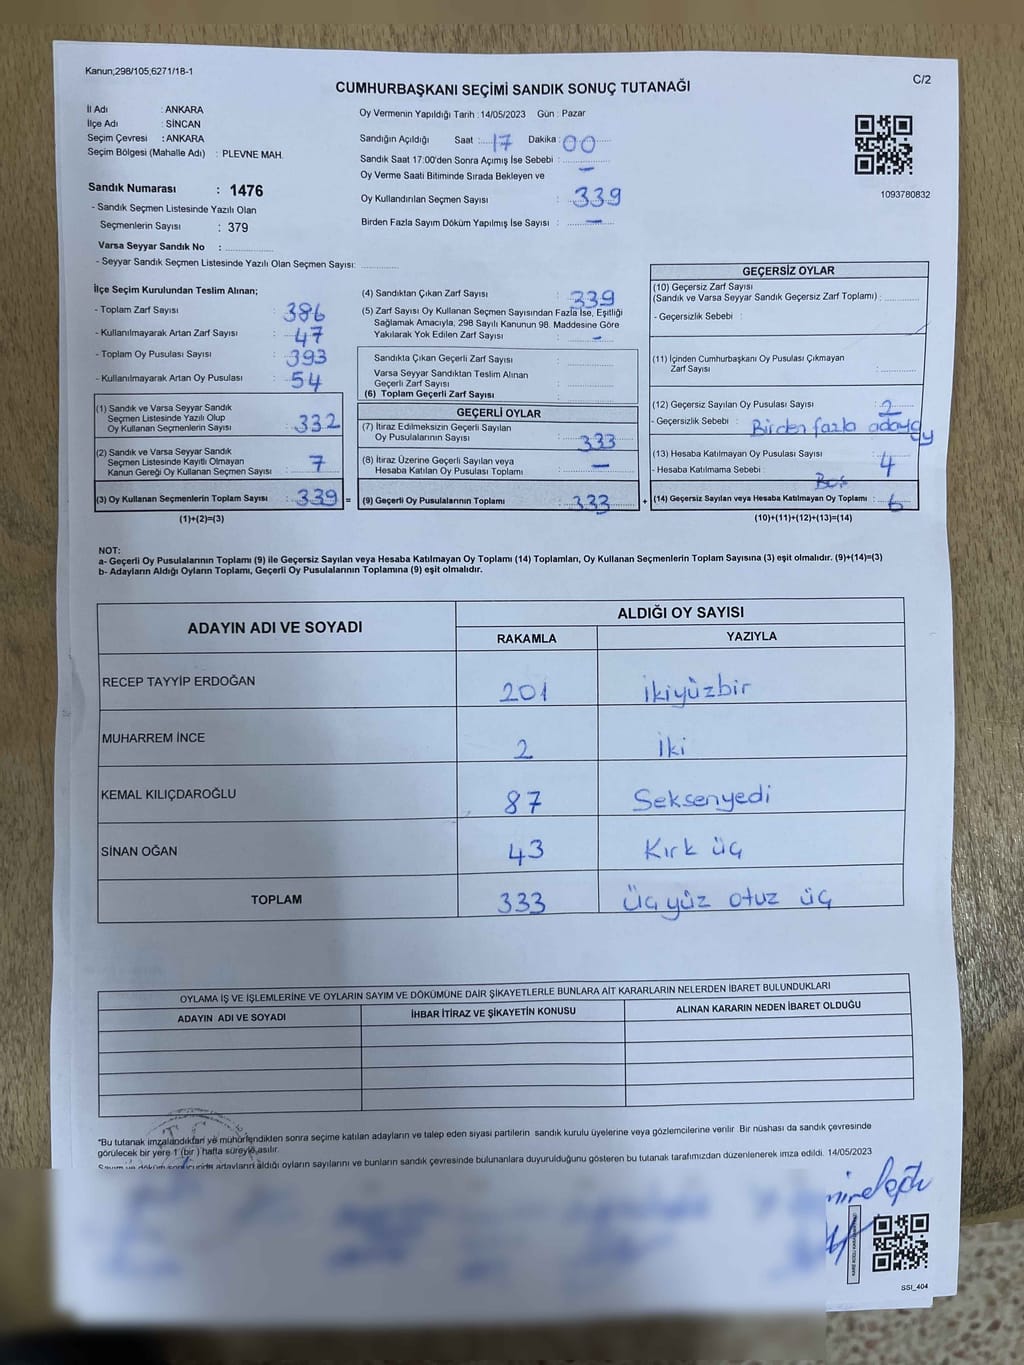 Kanun;298/105,6271/18-1
C/2
CUMHURBAŞKANI SEÇİMİ SANDIK SONUÇ TUTANAĞI
İl Adı : ANKARA
İlçe Adı : SİNCAN
Seçim Çevresi : ANKARA
Seçim Bölgesi (Mahalle Adı) : PLEVNE MAH.
Sandık Numarası : 1476
- Sandık Seçmen Listesinde Yazılı Olan
Seçmenlerin Sayısı : 379
Varsa Seyyar Sandık No :
- Seyyar Sandık Seçmen Listesinde Yazılı Olan Seçmen Sayısı:
Oy Vermenin Yapıldığı Tarih : 14/05/2023 Gün : Pazar
Sandığın Açıldığı Saat : 17 Dakika : 00
Sandık Saat 17:00'den Sonra Açımış İse Sebebi :
Oy Verme Saati Bitiminde Sırada Bekleyen ve —
Oy Kullandırılan Seçmen Sayısı : 339
Birden Fazla Sayım Döküm Yapılmış İse Sayısı : —
1093780832
İlçe Seçim Kurulundan Teslim Alınan;
- Toplam Zarf Sayısı : 386
- Kullanılmayarak Artan Zarf Sayısı : 47
- Toplam Oy Pusulası Sayısı : 393
- Kullanılmayarak Artan Oy Pusulası : 54
(1) Sandık ve Varsa Seyyar Sandık
Seçmen Listesinde Yazılı Olup
Oy Kullanan Seçmenlerin Sayısı : 332
(2) Sandık ve Varsa Seyyar Sandık
Seçmen Listesinde Kayıtlı Olmayan
Kanun Gereği Oy Kullanan Seçmen Sayısı : 7
(3) Oy Kullanan Seçmenlerin Toplam Sayısı : 339 =
(1)+(2)=(3)
(4) Sandıktan Çıkan Zarf Sayısı : 339
(5) Zarf Sayısı Oy Kullanan Seçmen Sayısından Fazla İse, Eşitliği
Sağlamak Amacıyla, 298 Sayılı Kanunun 98. Maddesine Göre
Yakılarak Yok Edilen Zarf Sayısı : —
Sandıkta Çıkan Geçerli Zarf Sayısı :
Varsa Seyyar Sandıktan Teslim Alınan
Geçerli Zarf Sayısı :
(6) Toplam Geçerli Zarf Sayısı :
GEÇERLİ OYLAR
(7) İtiraz Edilmeksizin Geçerli Sayılan
Oy Pusulalarının Sayısı : 333
(8) İtiraz Üzerine Geçerli Sayılan veya
Hesaba Katılan Oy Pusulası Toplamı : —
(9) Geçerli Oy Pusulalarının Toplamı : 333 +
GEÇERSİZ OYLAR
(10) Geçersiz Zarf Sayısı
(Sandık ve Varsa Seyyar Sandık Geçersiz Zarf Toplamı) :
- Geçersizlik Sebebi :
(11) İçinden Cumhurbaşkanı Oy Pusulası Çıkmayan
Zarf Sayısı :
(12) Geçersiz Sayılan Oy Pusulası : 2
- Geçersizlik Sebebi : Birden fazla adaya oy
(13) Hesaba Katılmayan Oy Pusulası Sayısı : 4
- Hesaba Katılmama Sebebi : Boş
(14) Geçersiz Sayılan veya Hesaba Katılmayan Oy Toplamı : 6
(10)+(11)+(12)+(13)=(14)
NOT:
a- Geçerli Oy Pusulalarının Toplamı (9) ile Geçersiz Sayılan veya Hesaba Katılmayan Oy Toplamı (14) Toplamları, Oy Kullanan Seçmenlerin Toplam Sayısına (3) eşit olmalıdır. (9)+(14)=(3)
b- Adayların Aldığı Oyların Toplamı, Geçerli Oy Pusulalarının Toplamına (9) eşit olmalıdır.
ADAYIN ADI VE SOYADI
ALDIĞI OY SAYISI
RAKAMLA YAZIYLA
RECEP TAYYİP ERDOĞAN 201 ikiyüzbir
MUHARREM İNCE 2 İki
KEMAL KILIÇDAROĞLU 87 Seksenyedi
SİNAN OĞAN 43 Kırk üç
TOPLAM 333 Üçyüz otuz üç
OYLAMA İŞ VE İŞLEMLERİNE VE OYLARIN SAYIM VE DÖKÜMÜNE DAİR ŞİKAYETLERLE BUNLARA AİT KARARLARIN NELERDEN İBARET BULUNDUKLARI
ADAYIN ADI VE SOYADI İHBAR İTİRAZ VE ŞİKAYETİN KONUSU ALINAN KARARIN NEDEN İBARET OLDUĞU
*Bu tutanak imzalandıktan ve mühürlendikten sonra seçime katılan adayların ve talep eden siyasi partilerin sandık kurulu üyelerine veya gözlemcilerine verilir .Bir nüshası da sandık çevresinde
görülecek bir yere 1 (bir ) hafta süreyle asılır.
Sayım ve döküm sonucunda adayların aldığı oyların sayılarını ve bunların sandık çevresinde bulunanlara duyurulduğunu gösteren bu tutanak tarafımızdan düzenlenerek imza edildi. 14/05/2023
T.C.
SSI_404